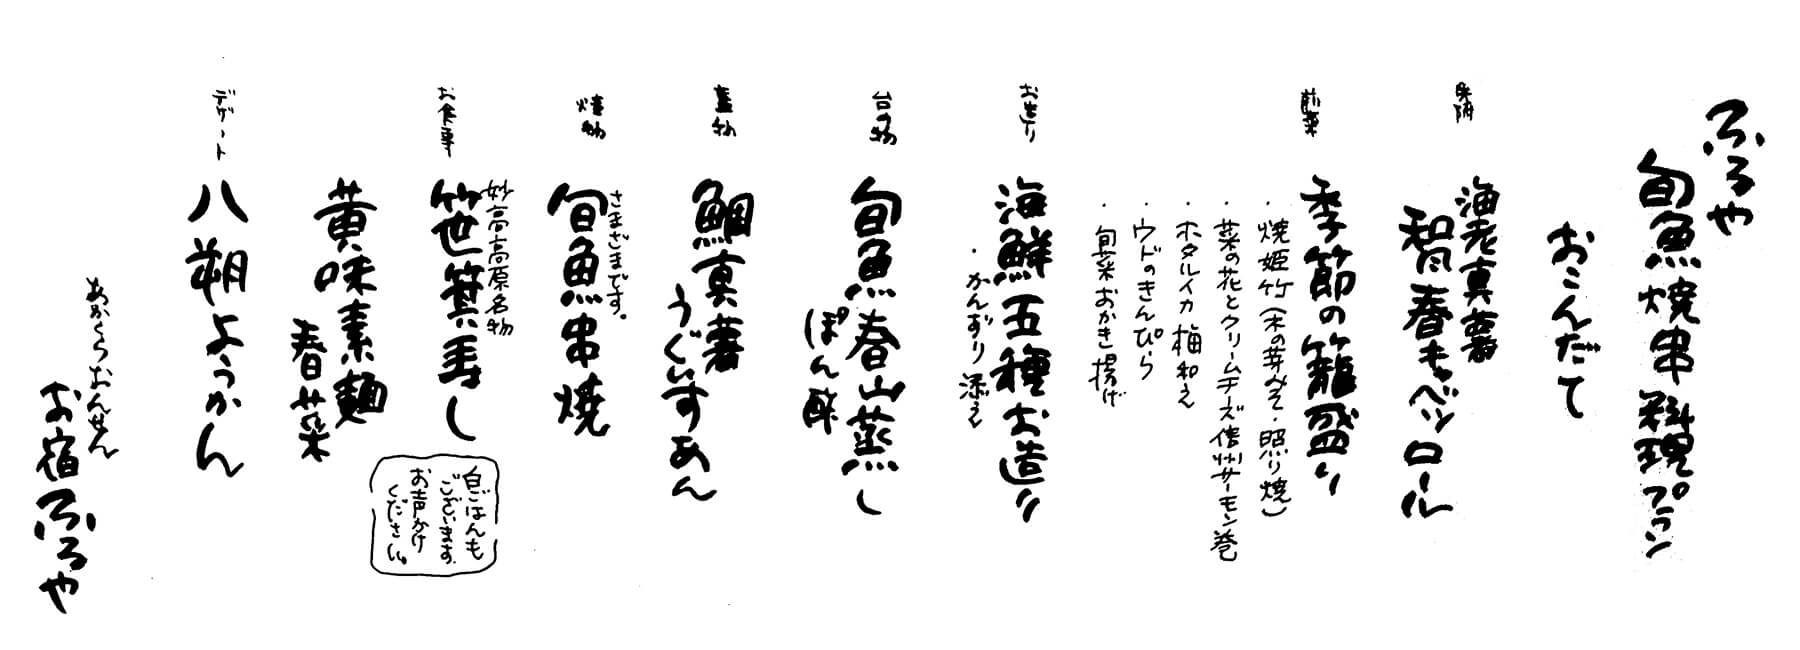 ふるや
旬魚焼串料理プラン
おこんだて
先附
海老真薯
和風春キャベツロール
前菜
季節の籠盛り
・焼姫竹（木の芽みそ・照り焼）
・菜の花とクリームチーズ信州サーモン巻
・ホタルイカ梅和え
・ウドのきんぴら
・旬菜おかき揚げ
お造り
海鮮五種お造り
・かんずり添え
台の物
旬魚春山蒸し
ぽん酢
蓋物
鯛真薯
うぐいすあん
焼物
さまざまです。
旬魚串焼
お食事
妙高高原名物
笹箕寿し
白ごはんも
ございます。
お声かけ
ください。
黄味素麺
春菜
デザート
八朔ようかん
あかくらおんせん
お宿ふるや